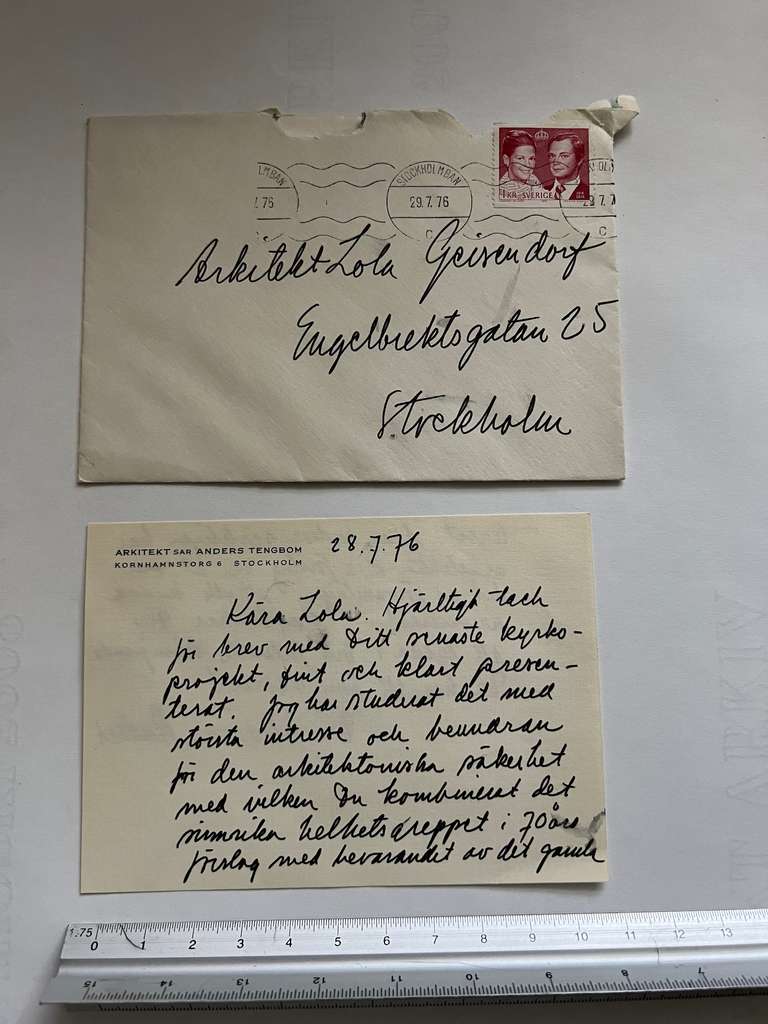 STOCKHOLM BAN
29.7.76
C
LM BAN
7.76
29.7.7
C
1 KR SVERIGE
Arkitekt Lola Geisendorf
Engelbrektsgatan 25
Stockholm
ARKITEKT SAR ANDERS TENGBOM
KORNHAMNSTORG 6 STOCKHOLM
28.7.76
Kära Lola. Hjärtligt tack
för brev med Ditt senaste kyrko-
projekt, fint och klart presen-
terat. Jag har studerat det med
största intresse och beundran
för den arkitektoniska säkerhet
med vilken Du kombinerat det
rumsrika helhetsgreppet i 70 års
förslag med bevarandet av det gamla
1.75
0 1 2 3 4 5 6 7 8 9 10 11 12 13
15 14 13 12 11 10 9 8 7